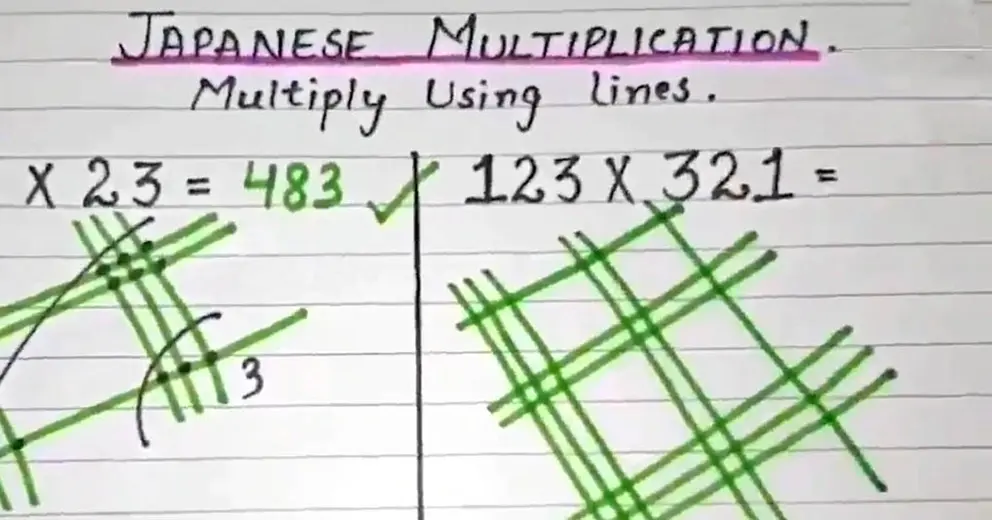 JAPANESE MULTIPLICATION.
Multiply Using lines.
X 23 = 483 ✓
3
123 X 321 =